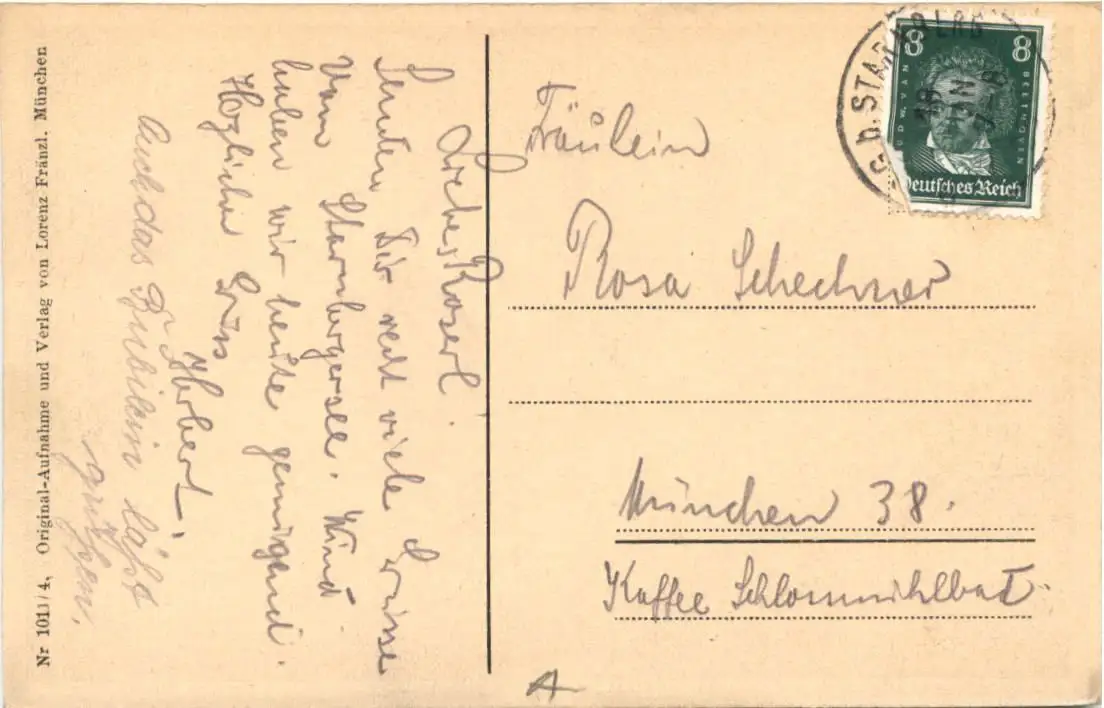 Liebes Roserl.
Senden Dir recht viele Grüsse
Vom Starnbergersee. Wind
haben wir heute genügend.
Herzliche Grüss
Herbert.
Auch das Bubilein läßt
grüßen.
Nr 1011/4, Original-Aufnahme und Verlag von Lorenz Fränzl. München
STARNBERG
18 JUN
8 8
LUDW. V. VAN BEETHOVEN
Deutsches Reich
Fräulein
Rosa Schechner
München 38.
Kaffee Schlossmühlbad
A